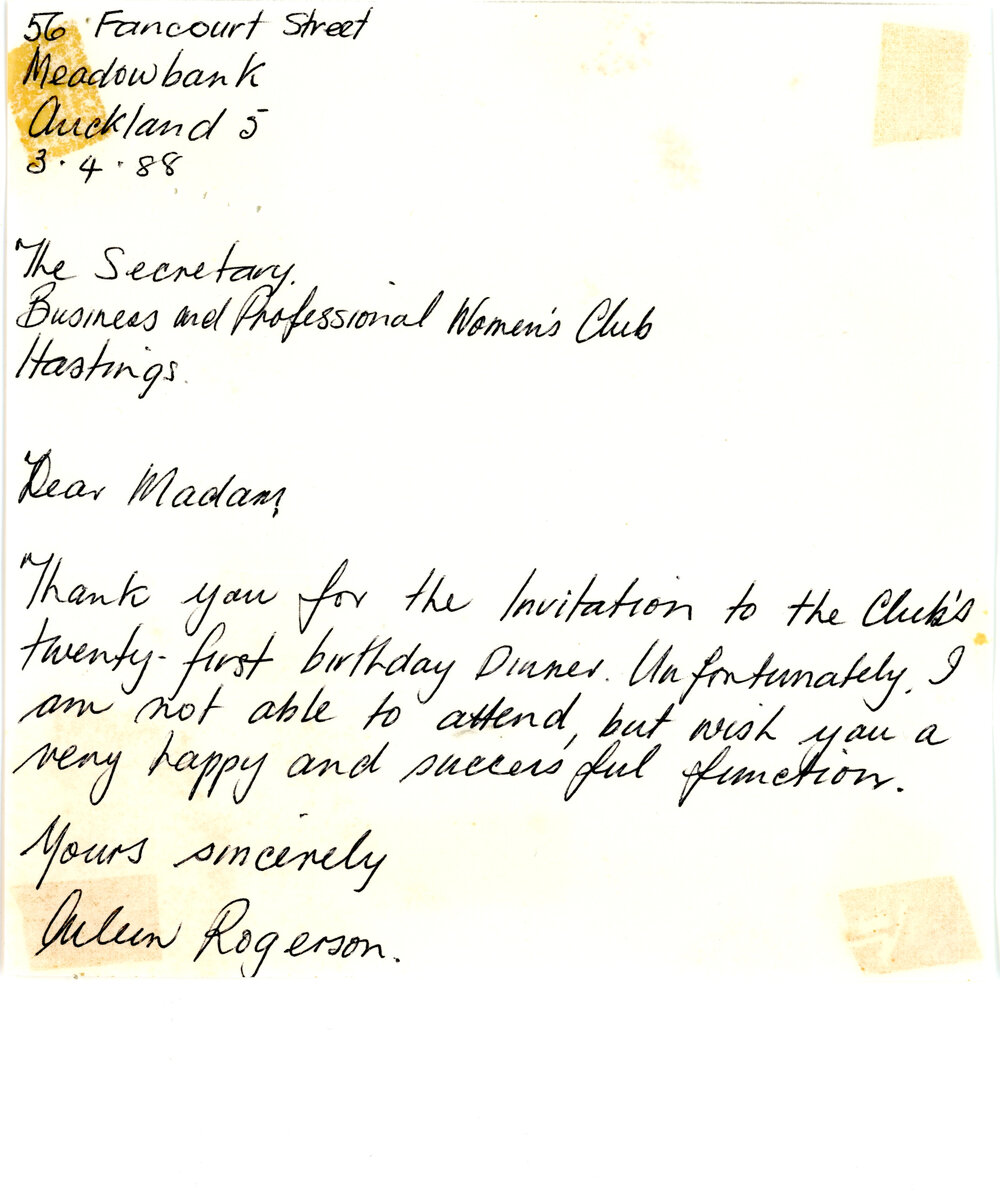 56 Fancourt Street
Meadowbank
Auckland 5
3.4.88
The Secretary.
Business and Professional Women's Club
Hastings.
Dear Madam,
Thank you for the Invitation to the Club's
twenty-first birthday Dinner. Unfortunately, I
am not able to attend, but wish you a
very happy and successful function.
Yours sincerely
Rogerson.